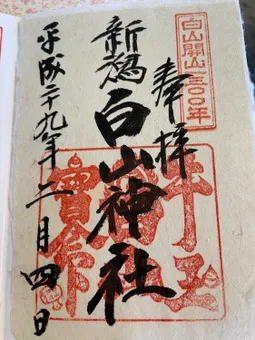 白山開山一三〇〇年
奉拝
新潟白山神社
平成二十九年二月四日
牛玉
寳命